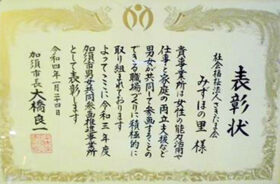 表彰状
社会福祉法人さきたま会
みずほの里 様
貴事業所は女性の能力活用や
仕事と家庭の両立支援など
男女が共同して参画することの
できる職場づくりに積極的に
取り組まれております
よってここに令和三年度
加須市男女共同参画推進事業所
として表彰します
令和四年一月二十四日
加須市長 大橋良一